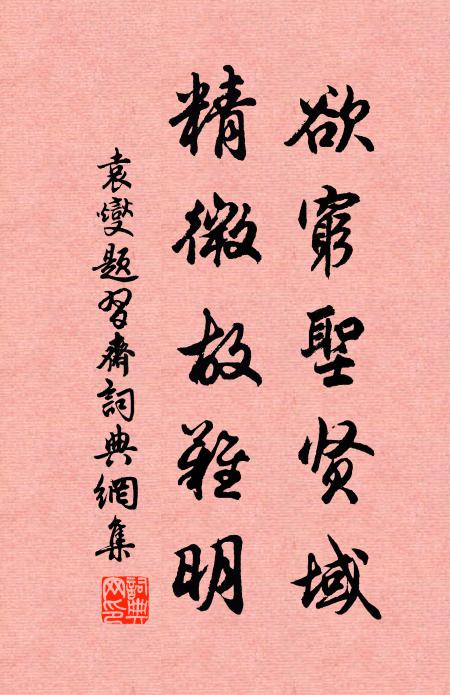 欲窮聖贤域
精微故難明
袁燮題習齋詞典網集
詞典网印